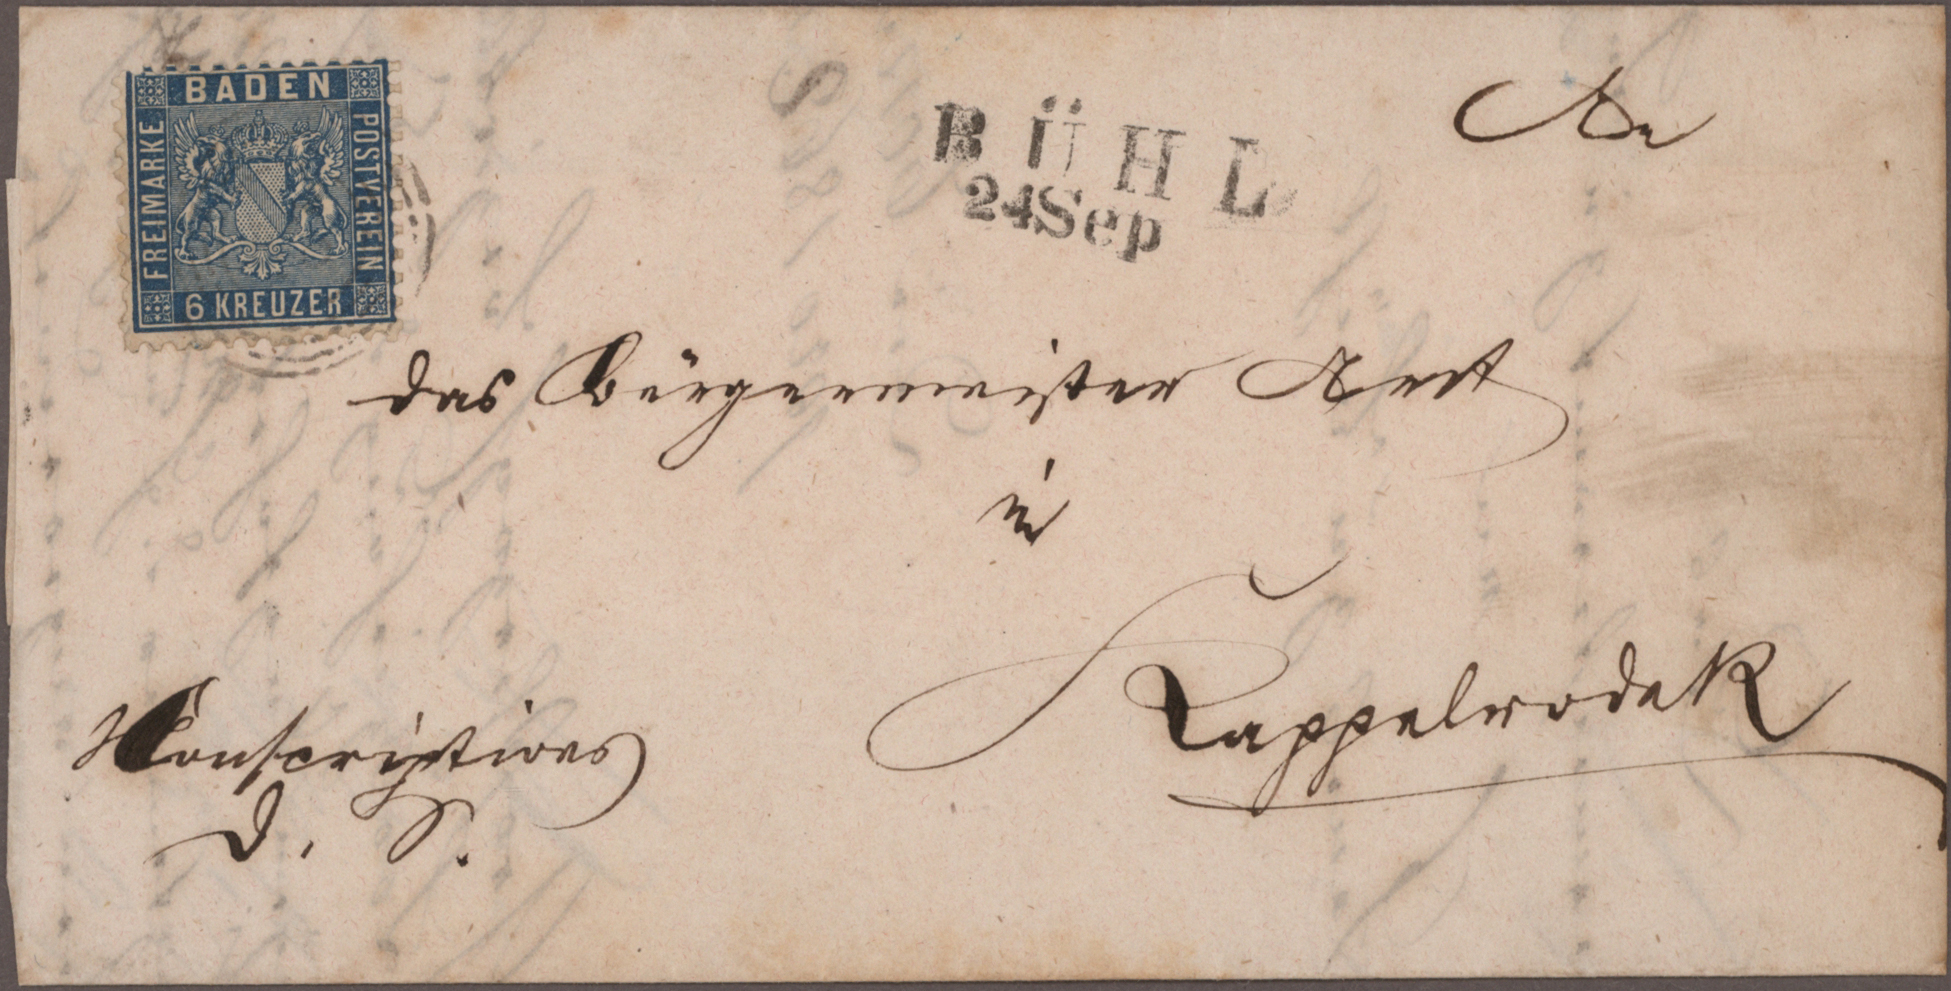 BADEN
FREIMARKE
POSTVEREIN
6 KREUZER
BÜHL
24 Sep
An
das Bürgermeister Amt
in
Kappelrodek
Conscriptions
D. S.